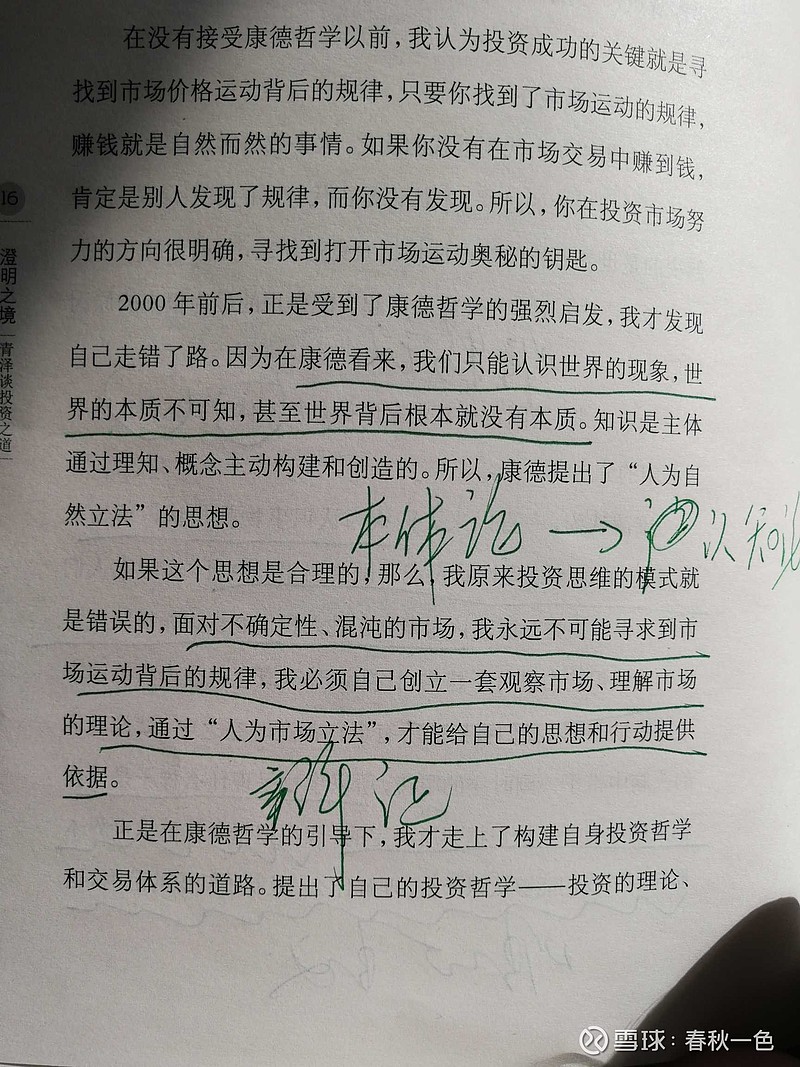 在没有接受康德哲学以前，我认为投资成功的关键就是寻
找到市场价格运动背后的规律，只要你找到了市场运动的规律，
赚钱就是自然而然的事情。如果你没有在市场交易中赚到钱，
肯定是别人发现了规律，而你没有发现。所以，你在投资市场努
力的方向很明确，寻找到打开市场运动奥秘的钥匙。
16
澄明之境
青泽谈投资之道
2000年前后，正是受到了康德哲学的强烈启发，我才发现
自己走错了路。因为在康德看来，我们只能认识世界的现象，世
界的本质不可知，甚至世界背后根本就没有本质。知识是主体
通过理知、概念主动构建和创造的。所以，康德提出了“人为自
然立法”的思想。
本体论→认知论
如果这个思想是合理的，那么，我原来投资思维的模式就
是错误的，面对不确定性、混沌的市场，我永远不可能寻求到市
场运动背后的规律，我必须自己创立一套观察市场、理解市场
的理论，通过“人为市场立法”，才能给自己的思想和行动提供
依据。
正是在康德哲学的引导下，我才走上了构建自身投资哲学
和交易体系的道路。提出了自己的投资哲学——投资的理论、
雪球：春秋一色